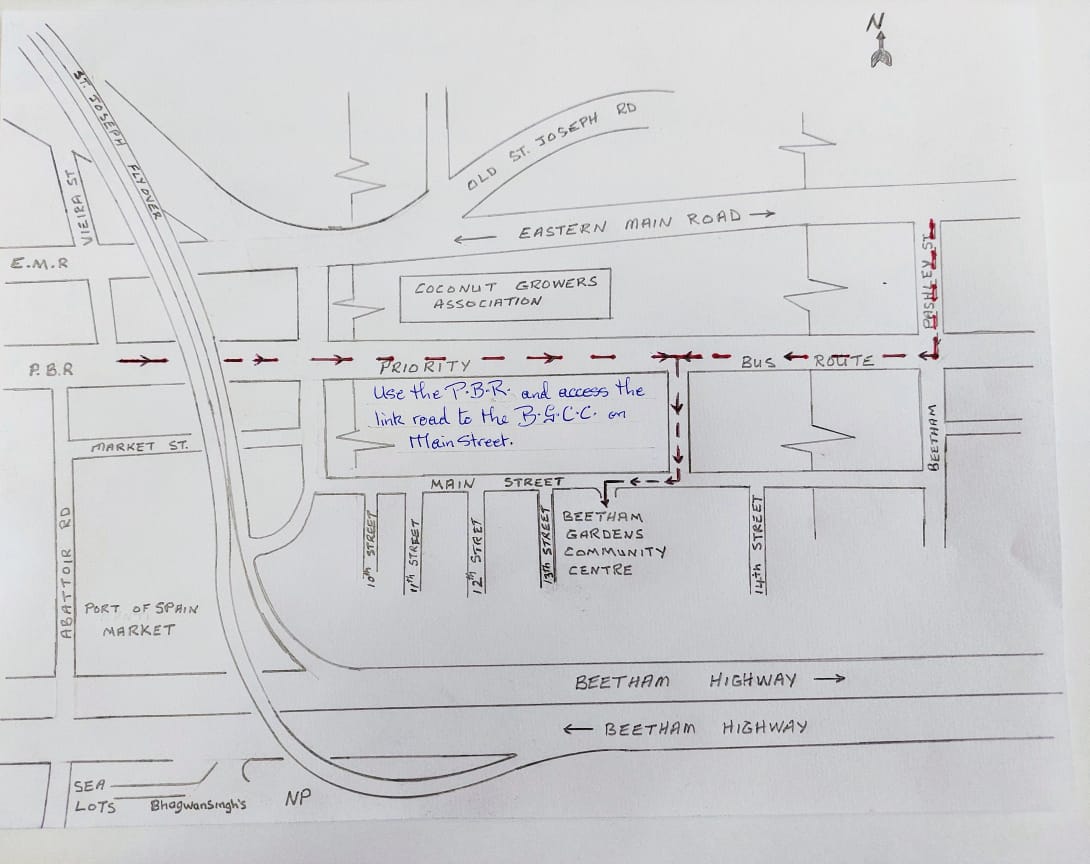 N
ST. JOSEPH FLYOVER
OLD ST. JOSEPH RD
VIEIRA ST
← EASTERN MAIN ROAD →
E.M.R
PASHLEY ST.
COCONUT GROWERS
ASSOCIATION
P.B.R
PRIORITY BUS ROUTE
Use the P.B.R. and access the
link road to the B.G.C.C. on
Main Street.
MARKET ST.
BEETHAM
MAIN STREET
ABATTOIR RD
10th STREET
11th STREET
12th STRET
13th STREET
14th STREET
BEETHAM
GARDENS
COMMUNITY
CENTRE
PORT OF SPAIN
MARKET
BEETHAM HIGHWAY →
← BEETHAM HIGHWAY
SEA
LOTS
Bhagwansingh's
NP